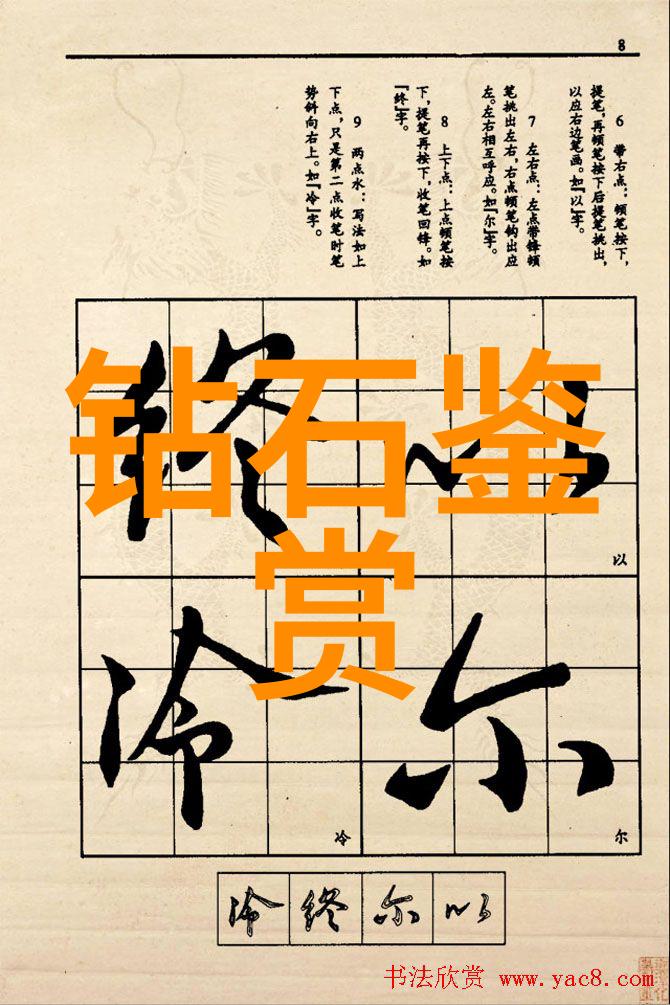 8
6 带右点：顿笔按下，
提笔，再顿笔按下后提笔挑出，
以应右边笔画。如『以』字。
7 左右点：左点带锋顿
笔挑出左右，右点顿笔钩出应
左。左右相互呼应。如『尔』字。
8 上下点：上点顿笔按
下，提笔再按下，收笔回锋。如
『终』字。
9 两点水：写法如上
下点，只是第二点收笔时笔
势斜向右上。如『冷』字。
钻石鉴
赏
终 以
以
冷 尔
冷 尔
冷 终 尔 以
书法欣赏 www.yac8.com